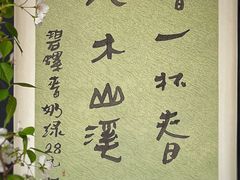 一杯春日
木山溪
碧螺春奶绿28元